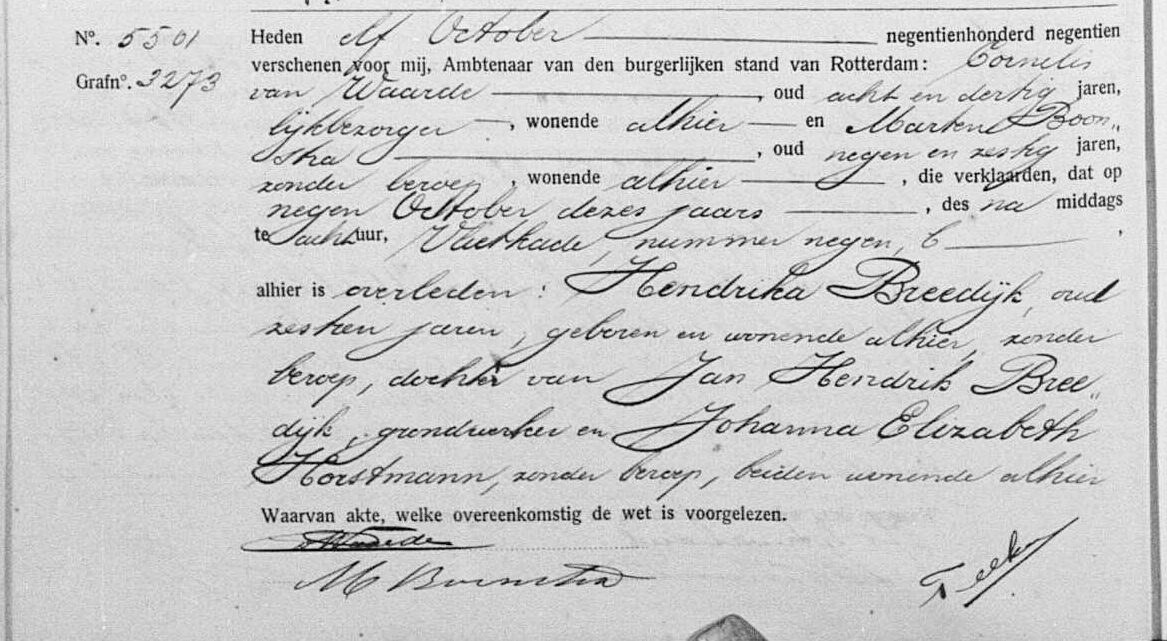 Nº. 5501 Heden elf October negentienhonderd negentien
verschenen voor mij, Ambtenaar van den burgerlijken stand van Rotterdam: Cornelis
Grafnº. 3273
van Waarde , oud acht en dertig jaren,
lijkbezorger , wonende alhier en Marten Boon„
stra , oud negen en zestig jaren,
zonder beroep , wonende alhier , die verklaarden, dat op
negen October dezes jaars , des na middags
te acht uur, Vlietkade, nummer negen, b ,
alhier is overleden: Hendrika Breedijk, oud
zestien jaren, geboren en wonende alhier, zonder
beroep, dochter van Jan Hendrik Bree„
dijk, grondwerker en Johanna Elizabeth
Horstmann, zonder beroep, beiden wonende alhier
Waarvan akte, welke overeenkomstig de wet is voorgelezen.
vWaarde
M Boonstra